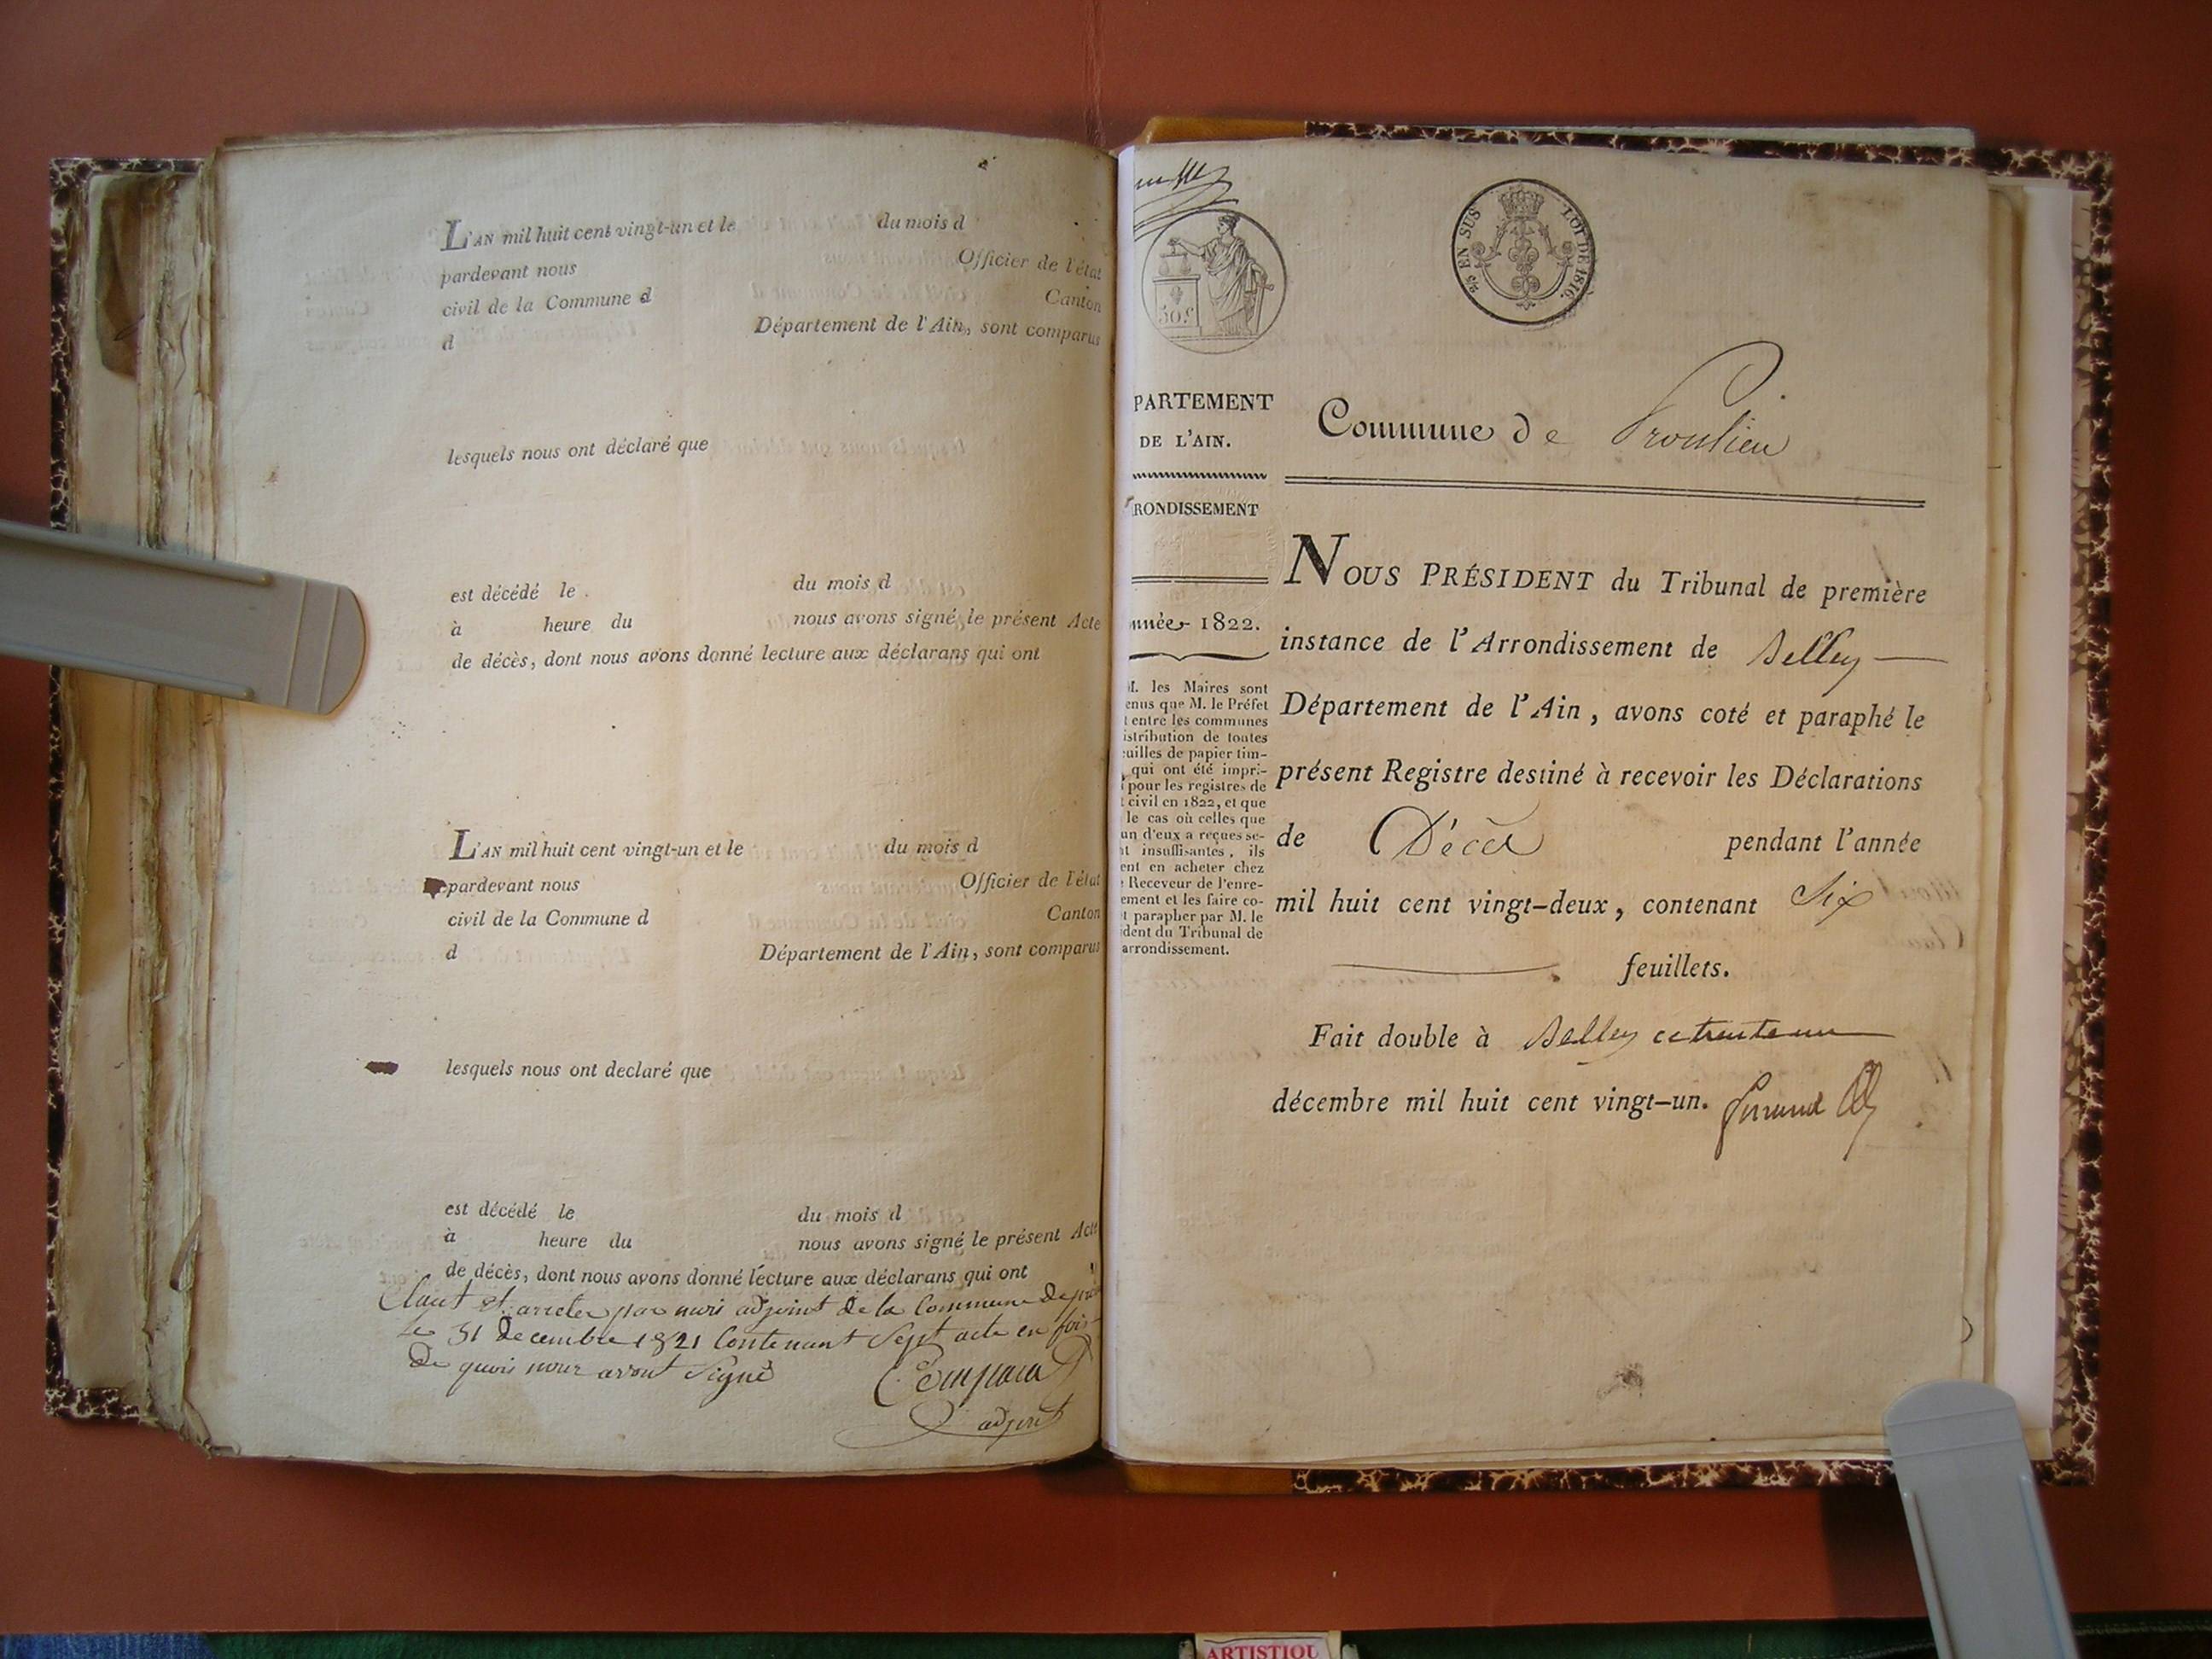 L'AN mil huit cent vingt-un et le du mois d
pardevant nous Officier de l'état
civil de la Commune d Canton
d Département de l'Ain, sont comparus
lesquels nous ont déclaré que
est décédé le du mois d
à heure du nous avons signé le présent Acte
de décès, dont nous avons donné lecture aux déclarans qui ont
L'AN mil huit cent vingt-un et le du mois d
pardevant nous Officier de l'état
civil de la Commune d Canton
d Département de l'Ain, sont comparus
lesquels nous ont declaré que
est décédé le du mois d
à heure du nous avons signé le présent Acte
de décès, dont nous avons donné lecture aux déclarans qui ont
Claut et arreter par nous adjoint de la Commune de
le 31 decembre 1821 Contenant Sept acte en foi
De quoi nour avont Signé
adjoint
50 c
2/5 EN SUS LOI DE 1816.
PARTEMENT
DE L'AIN.
RONDISSEMENT
nnée 1822.
M. les Maires sont
enus que M. le Préfet
t entre les communes
istribution de toutes
euilles de papier tim-
, qui ont été impri-
pour les registres de
t civil en 1822, et que
le cas où celles que
un d'eux a reçues se-
nt insuffisantes, ils
ent en acheter chez
Receveur de l'enre-
ement et les faire co-
t parapher par M. le
ident du Tribunal de
arrondissement.
Commune de Proulieu
NOUS PRÉSIDENT du Tribunal de première
instance de l'Arrondissement de Belley
Département de l'Ain, avons coté et paraphé le
présent Registre destiné à recevoir les Déclarations
de Décès pendant l'année
mil huit cent vingt-deux, contenant Six
feuillets.
Fait double à Belley ce trente un
décembre mil huit cent vingt-un.
ARTISTIQU